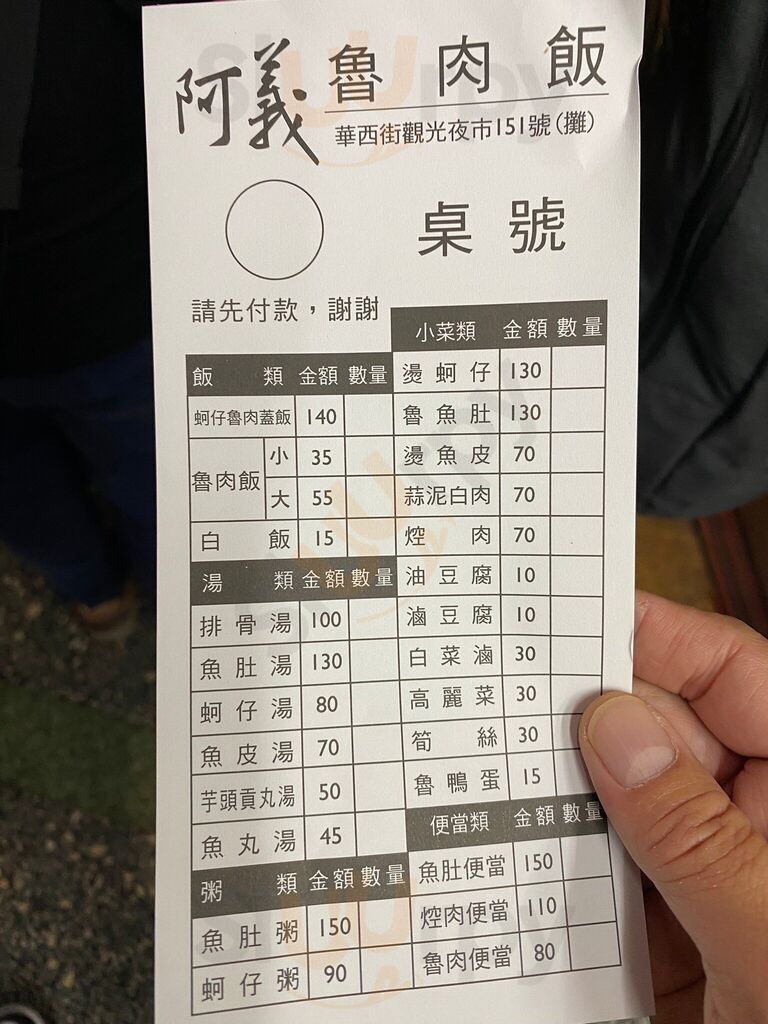 阿義 魯肉飯
華西街觀光夜市151號(攤)
桌號
請先付款，謝謝
飯類 金額 數量
蚵仔魯肉蓋飯 140
魯肉飯 小 35
大 55
白飯 15
湯類 金額 數量
排骨湯 100
魚肚湯 130
蚵仔湯 80
魚皮湯 70
芋頭貢丸湯 50
魚丸湯 45
粥類 金額 數量
魚肚粥 150
蚵仔粥 90
小菜類 金額 數量
燙蚵仔 130
魯魚肚 130
燙魚皮 70
蒜泥白肉 70
焢肉 70
油豆腐 10
滷豆腐 10
白菜滷 30
高麗菜 30
筍絲 30
魯鴨蛋 15
便當類 金額 數量
魚肚便當 150
焢肉便當 110
魯肉便當 80